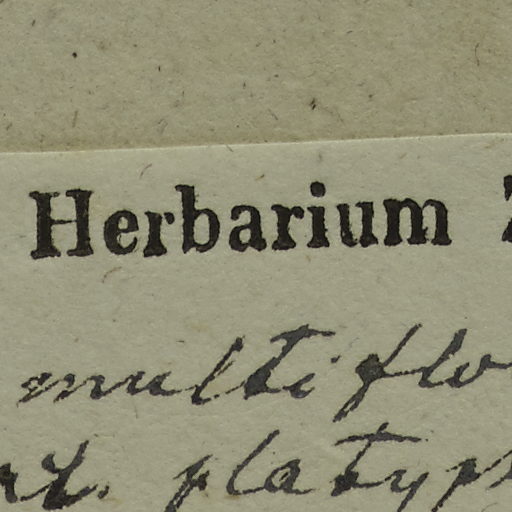 Herbarium
multiflo
platyp